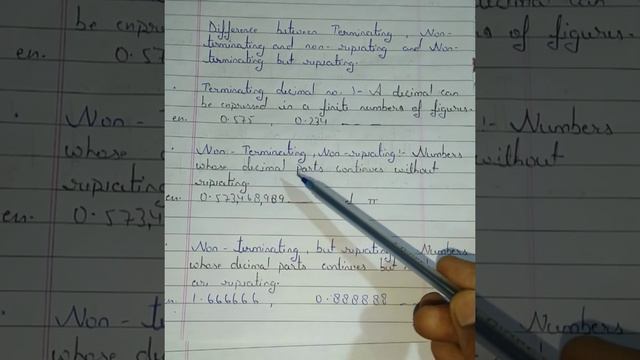 Difference between Terminating, Non-
terminating and non-repeating and Non-
terminating but repeating.
Terminating decimal no. :- A decimal can
be expressed in a finite numbers of figures.
ex. 0.575, 0.234
Non-Terminating, Non-repeating:- Numbers
whose decimal parts continues without
repeating.
ex. 0.573,468,989 π
Non-terminating, but repeating Numbers
whose decimal parts continues but
are repeating.
1.666666, 0.888888